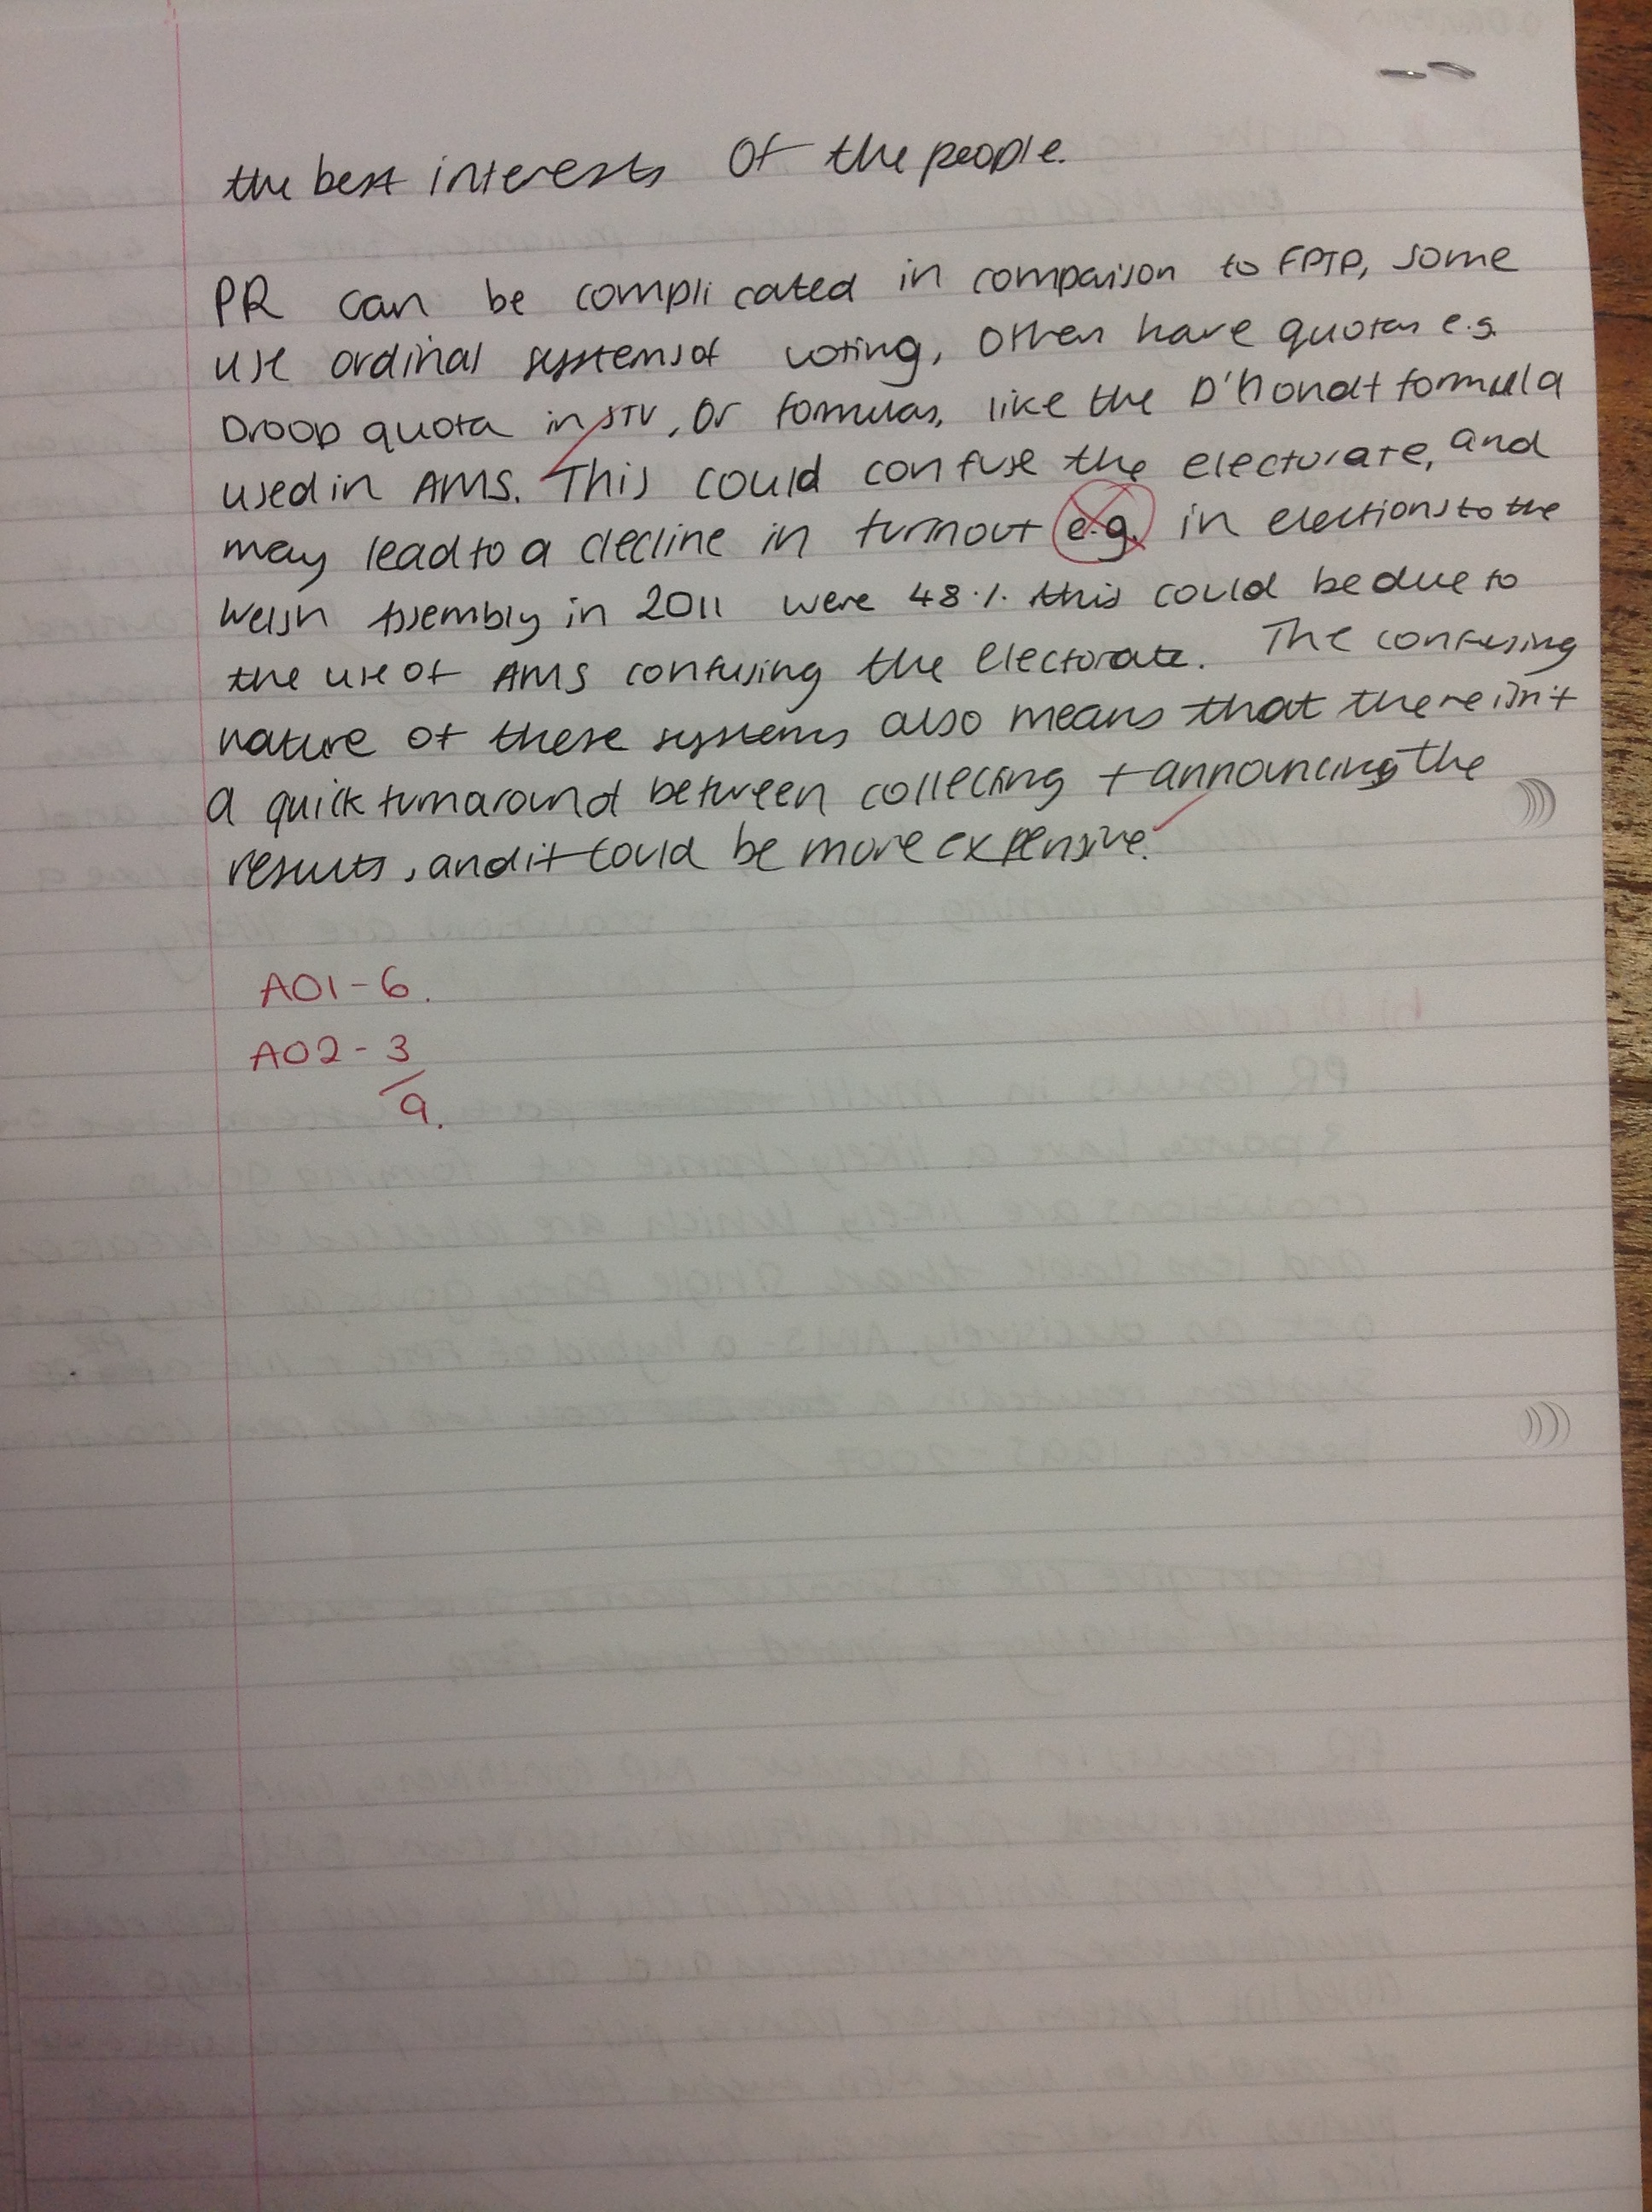 the best interests of the people.
PR can be complicated in compaison to FPTP, some
use ordinal systems of voting, others have quotas e.g.
Droop quota in STV, or formulas, like the D'hondt formula
used in AMS. This could confuse the electorate, and
may lead to a decline in turnout e.g. in elections to the
Welsh Assembly in 2011 were 48%. this could be due to
the use of AMS confusing the electorate. The confusing
nature of these systems also means that there isn't
a quick turnaround between collecting + announcing the
results, and it could be more expensive.
AO1 - 6.
AO2 - 3
9.